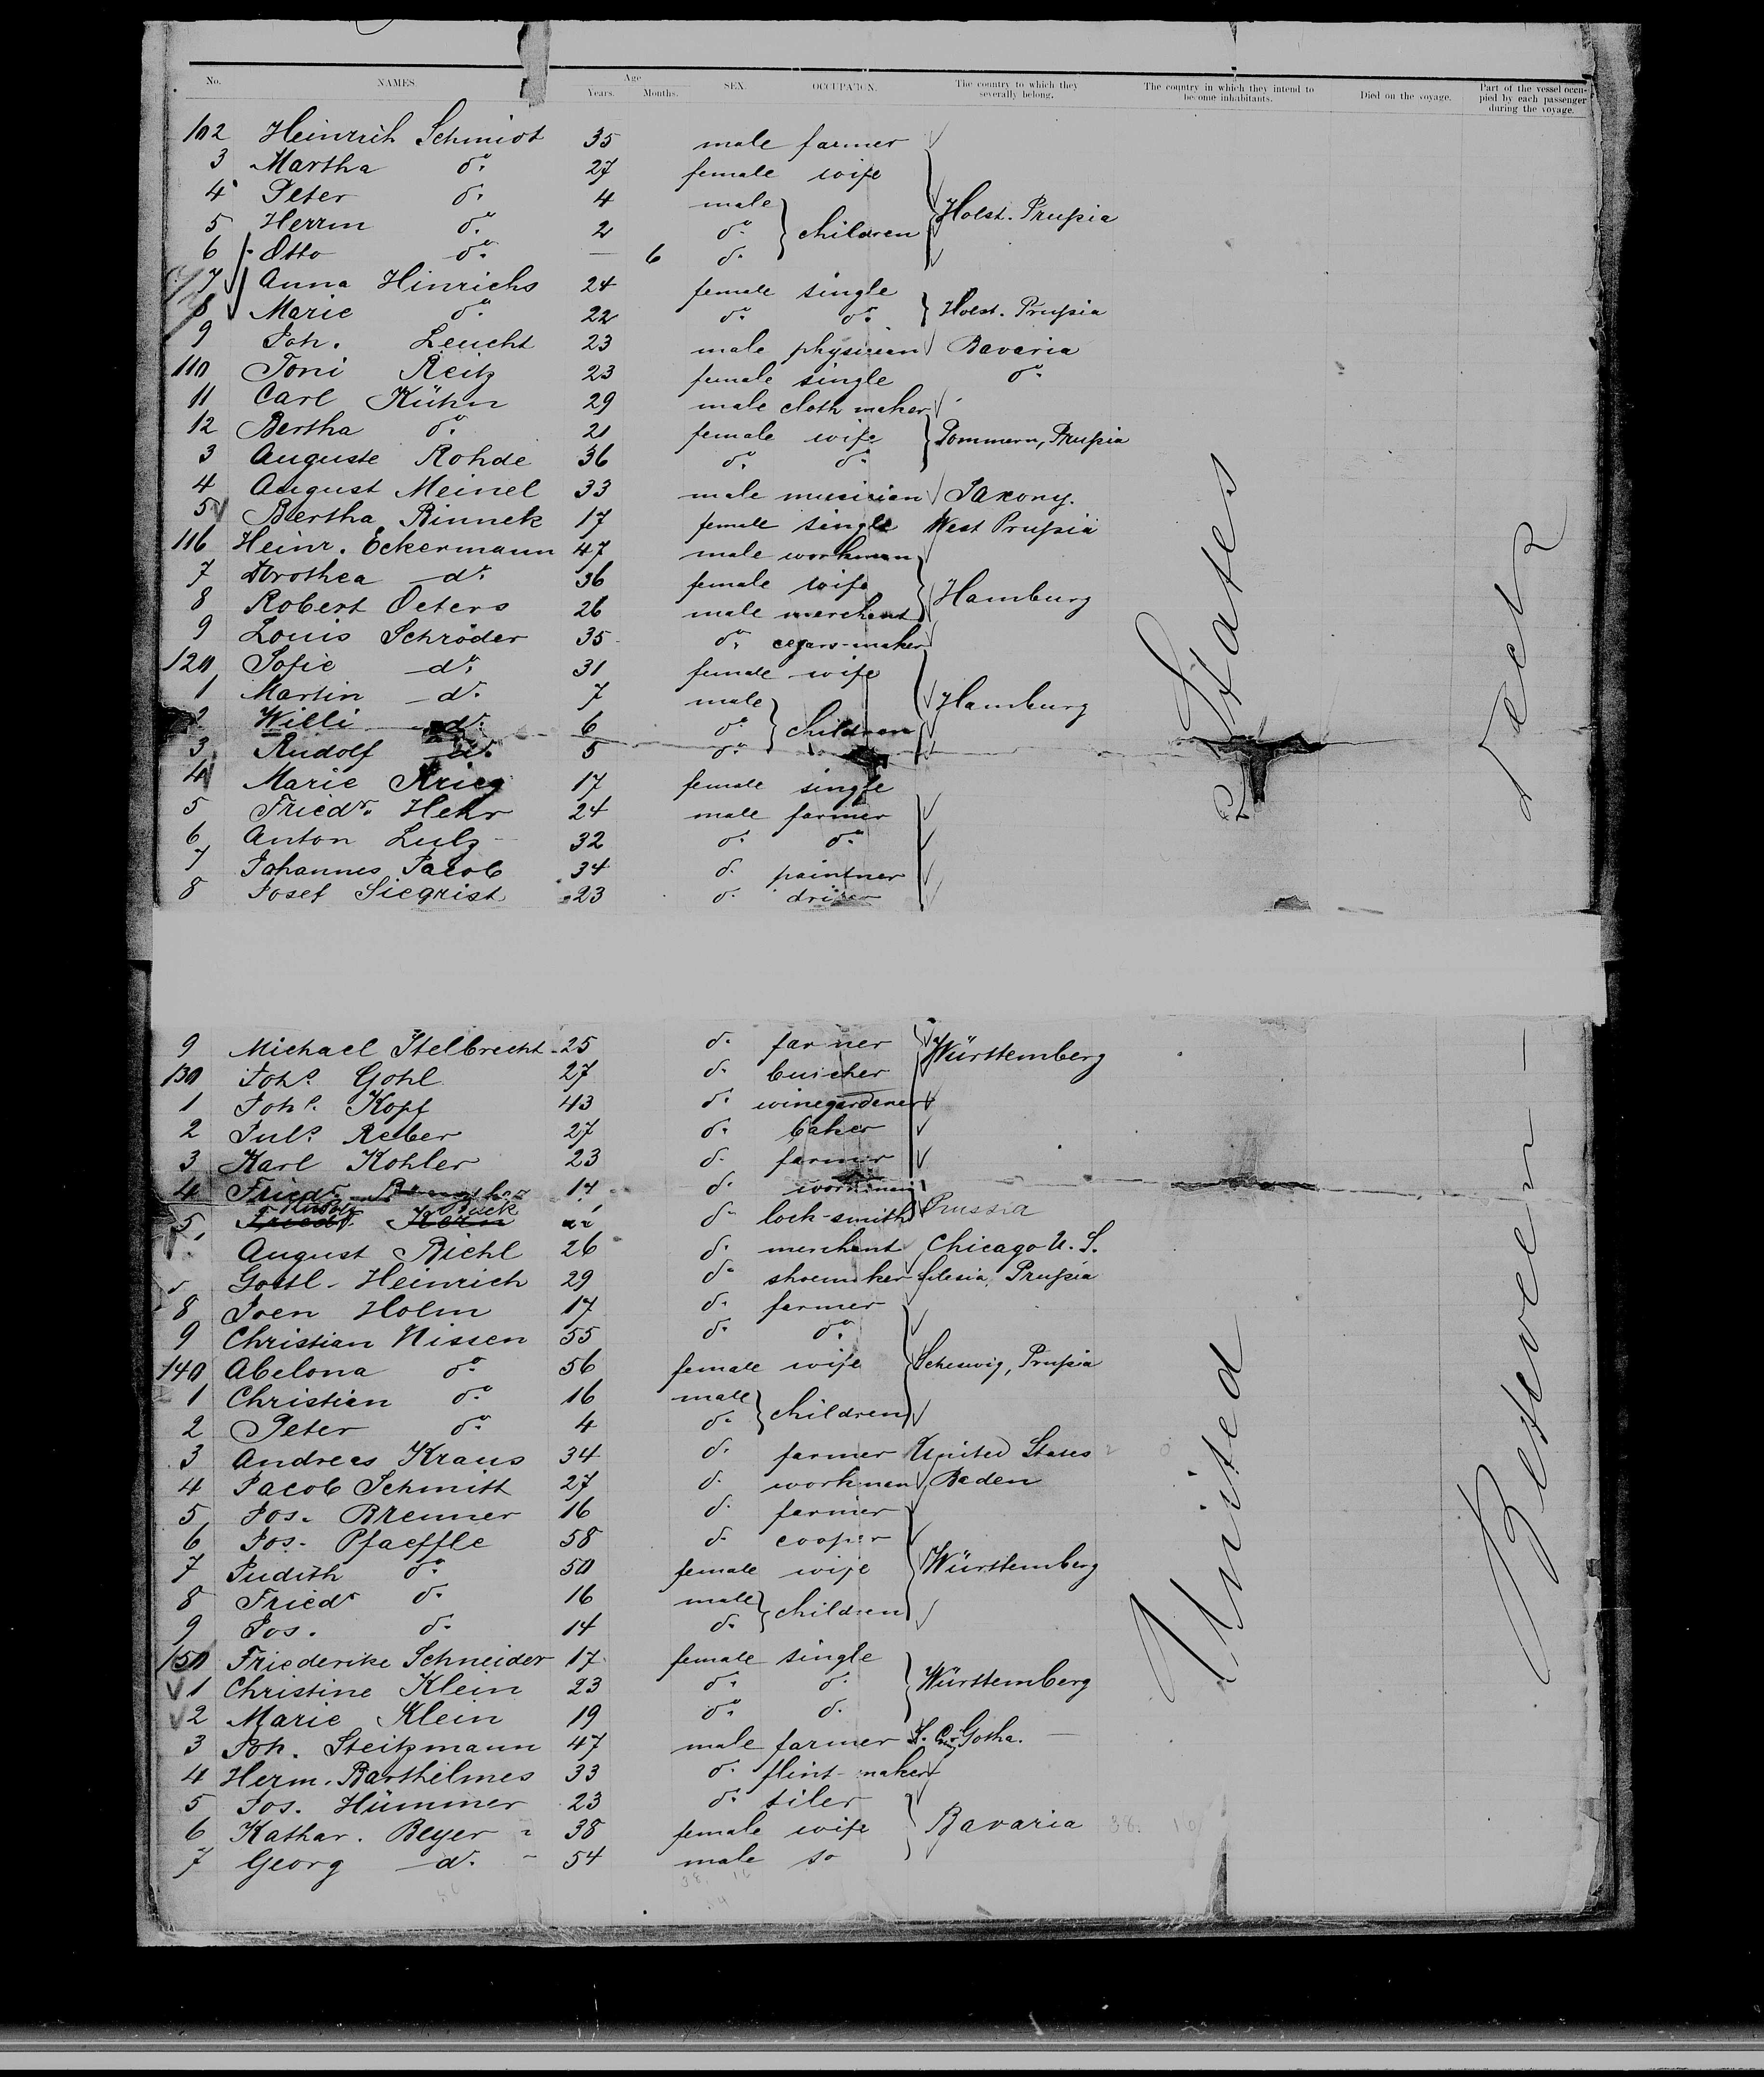 No. NAMES. Age Years. Months. SEX. OCCUPATION. The country to which they severally belong. The country in which they intend to become inhabitants. Died on the voyage. Part of the vessel occupied by each passenger during the voyage.
102 Heinrich Schmidt 35 male farmer
3 Martha do. 27 female wife
4 Peter do. 4 male
5 Herrm do. 2 do. children Holst. Prußia
6 Otto do. — 6 do.
7 Anna Hinrichs 24 female single
8 Marie do. 22 do. do. Holst. Prußia
9 Joh. Leucht 23 male physician Bavaria
110 Toni Reitz 23 female single do.
11 Carl Kühn 29 male cloth maker
12 Bertha do. 21 female wife Pommern, Prußia
3 Auguste Rohde 36 do. do.
4 August Meinel 33 male musician Saxony.
5 Bertha Rinnek 17 female single West Prußia
116 Heinr. Eckermann 47 male workman
7 Dorothea do. 36 female wife Hamburg
8 Robert Oeters 26 male merchant
9 Louis Schröder 35 do. cegars-maker
120 Sofie do. 31 female wife
1 Martin do. 7 male Hamburg
2 Willi do. 6 do. children
3 Rudolf do. 5 do.
4 Marie Krieg 17 female single
5 Friedr. Hehr 24 male farmer
6 Anton Lulz 32 do. do.
7 Johannes Jacob 34 do. paintner
8 Josef Siegrist 23 do.
9 Michael Stelbrecht 25 do. farmer Württemberg
130 Johs. Gohl 27 do. butcher
1 Johs. Kopf 43 do. winegardener
2 Juls. Reber 27 do. baker
3 Karl Kohler 23 do. farmer
4 Friedr. 17 do. workman
5 Friedr. Kern do. lock-smith Prussia
August Richl 26 do. merchant Chicago U. S.
Gottl. Heinrich 29 do. shoemaker Silesia, Prußia
8 Joen Holm 17 do. farmer
9 Christian Nissen 55 do. do.
140 Abelona do. 56 female wife Scheswig, Prußia
1 Christian do. 16 male
2 Peter do. 4 do. children
3 Andreas Kraus 34 do. farmer United States
4 Jacob Schmitt 27 do. workman Baden
5 Jos. Brenner 16 do. farmer
6 Jos. Pfaeffle 58 do. cooper
7 Judith do. 50 female wife Württemberg
8 Friedr do. 16 male
9 Jos. do. 14 do. children
150 Friederike Schneider 17 female single
1 Christine Klein 23 do. do. Württemberg
2 Marie Klein 19 do. do.
3 Joh. Steitzmann 47 male farmer Gotha.
4 Herm. Barthelmes 33 do. flint-maker
5 Jos. Hümmer 23 do. tiler
6 Kathar. Beyer 38 female wife Bavaria
7 Georg do. 54 male so
United States
Between Deck